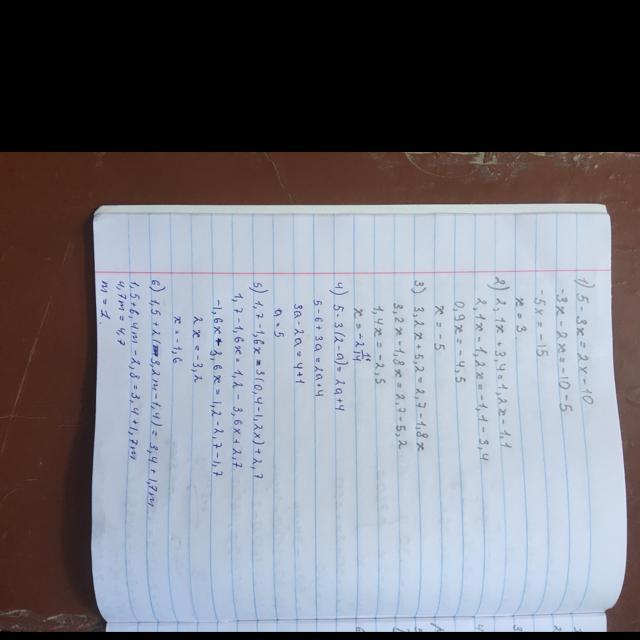 1) 5-3x=2x-10
-3x-2x=-10-5
-5x=-15
x=3
2) 2,1x+3,4=1,2x-1,1
2,1x-1,2x=-1,1-3,4
0,9x=-4,5
x=-5
3) 3,2x+5,2=2,7-1,8x
3,2x-1,8x=2,7-5,2
1,4x=-2,5
4) 5-3(2-a)=2a+4
5-6+3a=2a+4
3a-2a=4+1
a=5
5) 1,7-1,6x=3(0,4-1,2x)+2,7
1,7-1,6x=1,2-3,6x+2,7
2x=-3,2
x=-1,6
1,5+6,4m-2,8=3,4+1,7m
4,7m=4,7
m=1.